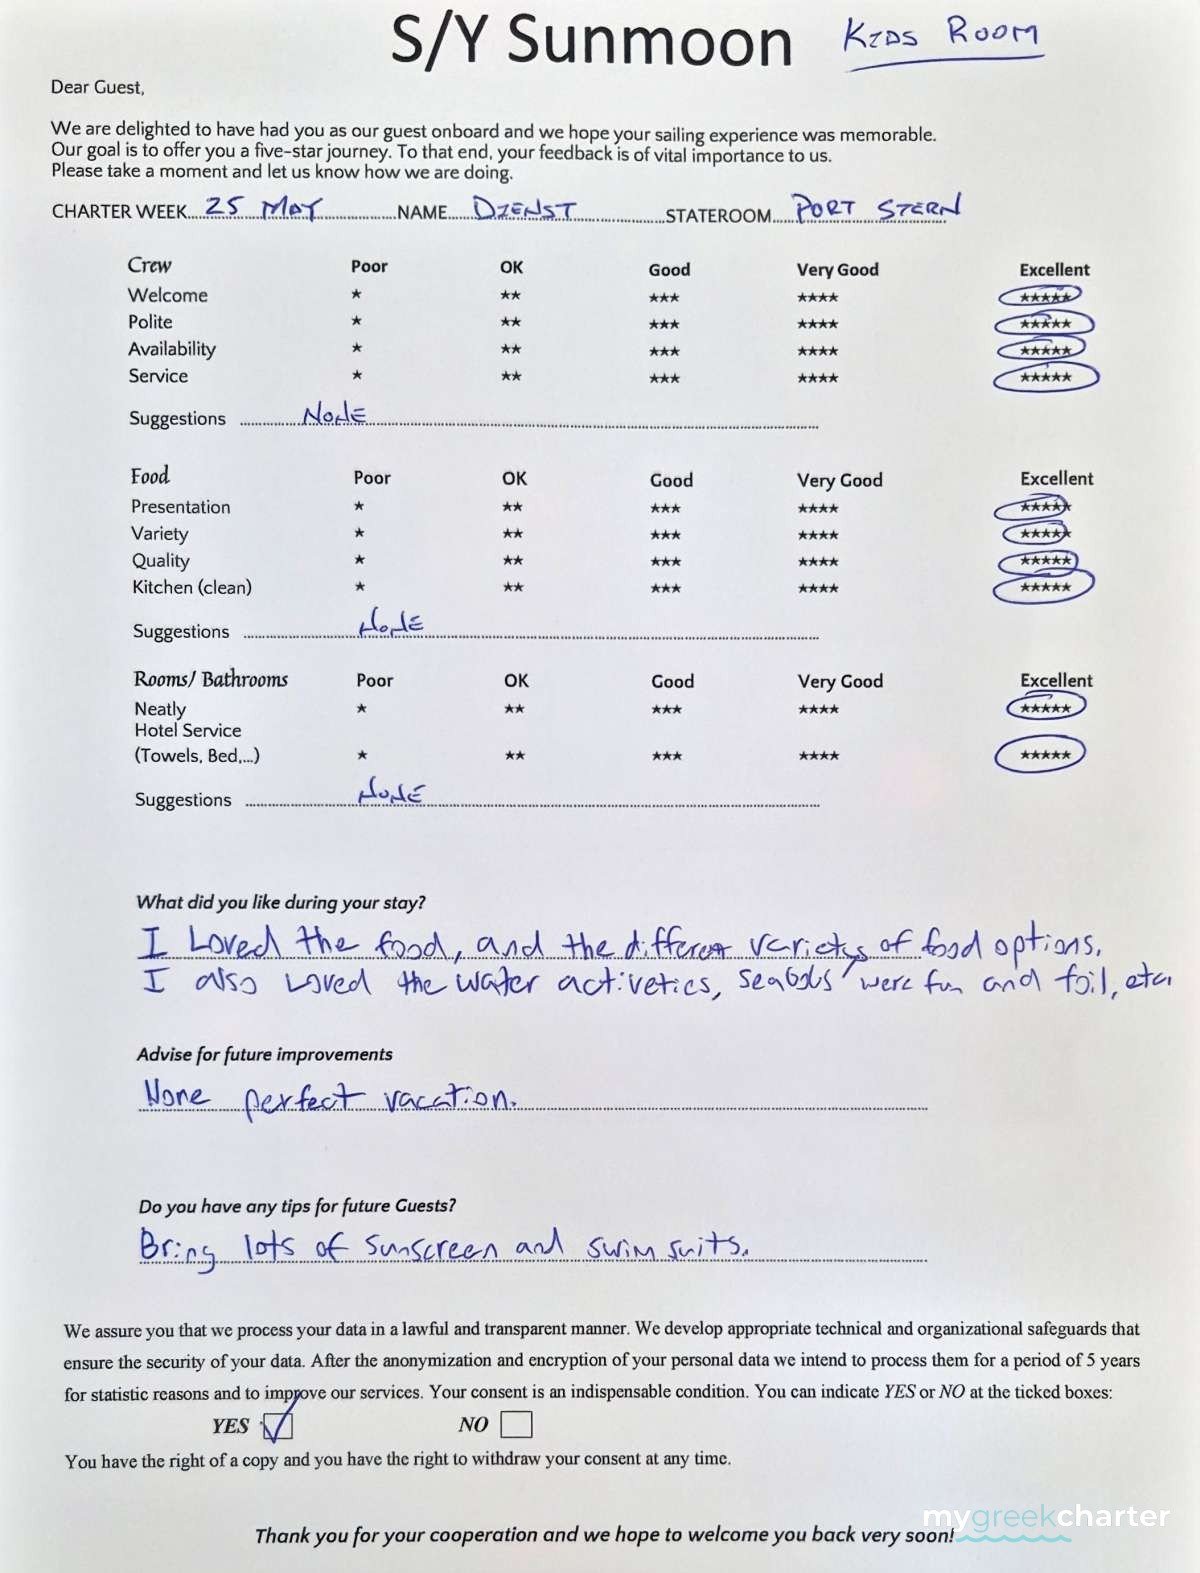 S/Y Sunmoon KIDS ROOM
Dear Guest,
We are delighted to have had you as our guest onboard and we hope your sailing experience was memorable.
Our goal is to offer you a five-star journey. To that end, your feedback is of vital importance to us.
Please take a moment and let us know how we are doing.
CHARTER WEEK... 25 MAY ...NAME... DIENST ...STATEROOM... PORT STERN
Crew Poor OK Good Very Good Excellent
Welcome ★ ★★ ★★★ ★★★★ ★★★★★
Polite ★ ★★ ★★★ ★★★★ ★★★★★
Availability ★ ★★ ★★★ ★★★★ ★★★★★
Service ★ ★★ ★★★ ★★★★ ★★★★★
Suggestions ... NONE ...
Food Poor OK Good Very Good Excellent
Presentation ★ ★★ ★★★ ★★★★ ★★★★★
Variety ★ ★★ ★★★ ★★★★ ★★★★★
Quality ★ ★★ ★★★ ★★★★ ★★★★★
Kitchen (clean) ★ ★★ ★★★ ★★★★ ★★★★★
Suggestions ... NONE ...
Rooms/ Bathrooms Poor OK Good Very Good Excellent
Neatly ★ ★★ ★★★ ★★★★ ★★★★★
Hotel Service
(Towels, Bed,...) ★ ★★ ★★★ ★★★★ ★★★★★
Suggestions ... NONE ...
What did you like during your stay?
I Loved the food, and the different varietys of food options.
I also Loved the water activetics, seabobs were fun and foil, etc.
Advise for future improvements
None perfect vacation.
Do you have any tips for future Guests?
Bring lots of sunscreen and swim suits.
We assure you that we process your data in a lawful and transparent manner. We develop appropriate technical and organizational safeguards that
ensure the security of your data. After the anonymization and encryption of your personal data we intend to process them for a period of 5 years
for statistic reasons and to improve our services. Your consent is an indispensable condition. You can indicate YES or NO at the ticked boxes:
YES ☑ NO ☐
You have the right of a copy and you have the right to withdraw your consent at any time.
mygreekcharter
Thank you for your cooperation and we hope to welcome you back very soon!